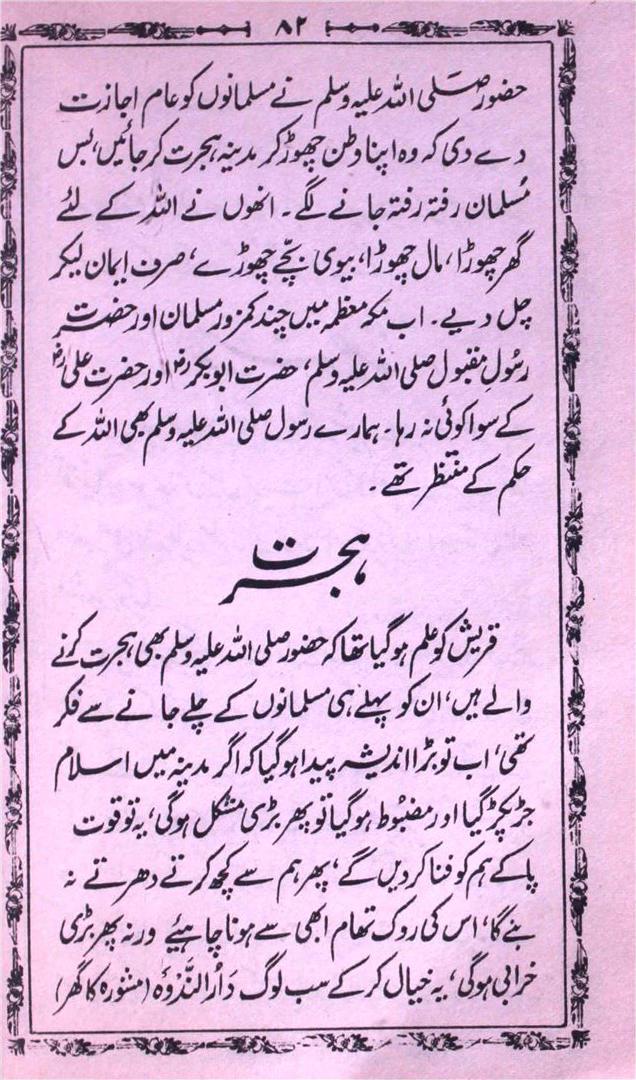 ۸۲
حضور صلی اللہ علیہ وسلم نے مسلمانوں کو عام اجازت
دے دی کہ وہ اپنا وطن چھوڑ کر مدینہ ہجرت کر جائیں، بس
مُسلمان رفتہ رفتہ جانے لگے۔ انھوں نے اللہ کے لئے
گھر چھوڑا، مال چھوڑا، بیوی بچّے چھوڑے، صرف ایمان لیکر
چل دیے۔ اب مکہ معظمہ میں چند کمزور مسلمان اور حضرت
رسُولِ مقبول صلی اللہ علیہ وسلم، حضرت ابوبکرؓ اور حضرت علیؓ
کے سوا کوئی نہ رہا۔ ہمارے رسول صلی اللہ علیہ وسلم بھی اللہ کے
حکم کے منتظر تھے۔
ہجرت
قریش کو علم ہو گیا تھا کہ حضور صلی اللہ علیہ وسلم بھی ہجرت کرنے
والے ہیں، ان کو پہلے ہی مسلمانوں کے چلے جانے سے فکر
تھی، اب تو بڑا اندیشہ پیدا ہو گیا کہ اگر مدینہ میں اسلام
جڑ پکڑ گیا اور مضبُوط ہو گیا تو پھر بڑی مشکل ہو گی، یہ تو قوت
پا کے ہم کو فنا کر دیں گے، پھر ہم سے کچھ کرتے دھرتے نہ
بنے گا، اس کی روک تھام ابھی سے ہونا چاہیئے ورنہ پھر بڑی
خرابی ہو گی، یہ خیال کر کے سب لوگ دَارُ النَّدْوَہ (مشورہ کا گھر)